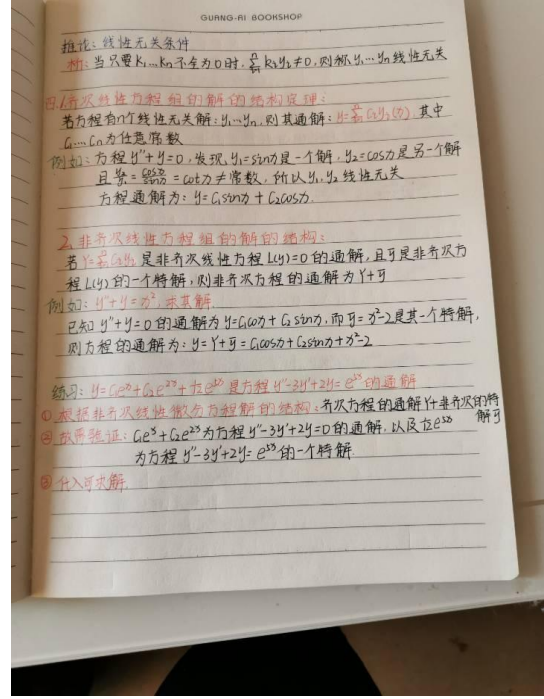 GUANG-AI BOOKSHOP
推论:线性无关条件
析:当只要k₁…kₙ不全为0时,∑kᵢyᵢ≠0,则称y₁…yₙ线性无关
四.1.齐次线性方程组的解的结构定理:
若方程有n个线性无关解:y₁…yₙ,则其通解:y=∑Cᵢyᵢ(x),其中
C₁…Cₙ为任意常数
例如:方程y''+y=0,发现,y₁=sinx是一个解,y₂=cosx是另一个解
且y₂/y₁=cosx/sinx=cotx≠常数,所以y₁,y₂线性无关
方程通解为:y=C₁sinx+C₂cosx.
2.非齐次线性方程组的解的结构:
若Y=∑Cᵢyᵢ是非齐次线性方程L(y)=0的通解,且ȳ是非齐次方
程L(y)的一个特解,则非齐次方程的通解为Y+ȳ
例如:y''+y=x²,求其解.
已知y''+y=0的通解为y=C₁cosx+C₂sinx,而ȳ=x²-2是其一个特解,
则方程的通解为:y=Y+ȳ=C₁cosx+C₂sinx+x²-2
练习:y=C₁eˣ+C₂e²ˣ+1/12e⁵ˣ是方程y''-3y'+2y=e⁵ˣ的通解
① 根据非齐次线性微分方程解的结构:齐次方程的通解Y+非齐次的特
解ȳ
② 故需验证:C₁eˣ+C₂e²ˣ为方程y''-3y'+2y=0的通解,以及1/12e⁵ˣ
为方程y''-3y'+2y=e⁵ˣ的一个特解.
③ 代入可求解.